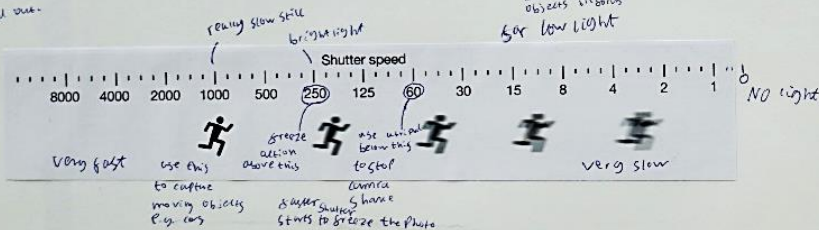 out.
really slow still
bright light
objects
for low light
Shutter speed
8000 4000 2000 1000 500 250 125 60 30 15 8 4 2 1
NO light
very fast
use this
to captue
moving objects
e.g. cars
freeze
action
above this
use
below this
to stop
camra
shake
very slow
faster shutter
starts to freeze the photo